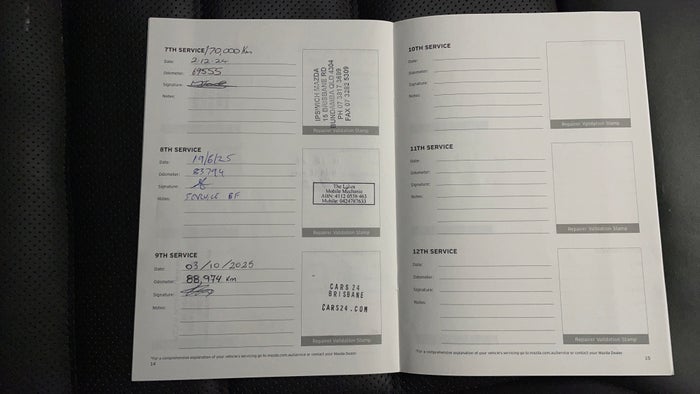 7TH SERVICE/70,000 Km
Date: 2-12-24
Odometer: 69555
Signature:
Notes:
IPSWICH MAZDA
15 BRISBANE RD
BUNDAMBA QLD 4304
PH 07 3817 3899
FAX 07 3282 5309
Repairer Validation Stamp
8TH SERVICE
Date: 19/6/25
Odometer: 83794
Signature:
Notes: SERVICE EF
The Lakes
Mobile Mechanic
ABN: 4112 0558 463
Mobile: 0424787633
Repairer Validation Stamp
9TH SERVICE
Date: 03/10/2025
Odometer: 88,974 km
Signature:
Notes:
CARS 24
BRISBANE
CARS24.COM
Repairer Validation Stamp
*For a comprehensive explanation of your vehicle's servicing go to mazda.com.au/service or contact your Mazda Dealer
14
10TH SERVICE
Date:
Odometer:
Signature:
Notes:
Repairer Validation Stamp
11TH SERVICE
Date:
Odometer:
Signature:
Notes:
Repairer Validation Stamp
12TH SERVICE
Date:
Odometer:
Signature:
Notes:
Repairer Validation Stamp
*For a comprehensive explanation of your vehicle's servicing go to mazda.com.au/service or contact your Mazda Dealer
15